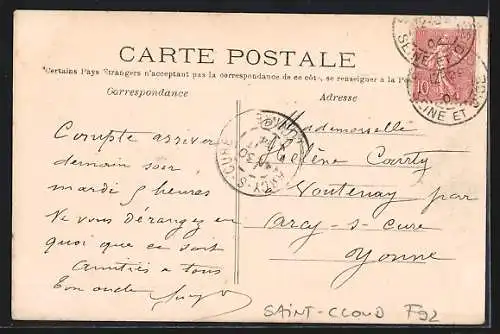 CARTE POSTALE
Certains Pays Étrangers n'acceptant pas la correspondance de ce côté, se renseigner à la Po
Correspondance
Adresse
Compte arriver
demain soir
mardi 5 heures
Ne vous dérangez en
quoi que ce soit
Amitiés à tous
Ton oncle
Mademoiselle
Hélène
à Voutenay par
Arcy-s-cure
Yonne
10
SEINE ET OISE
SEINE ET OISE
ARCY-S-CURE
SAINT-CLOUD F92